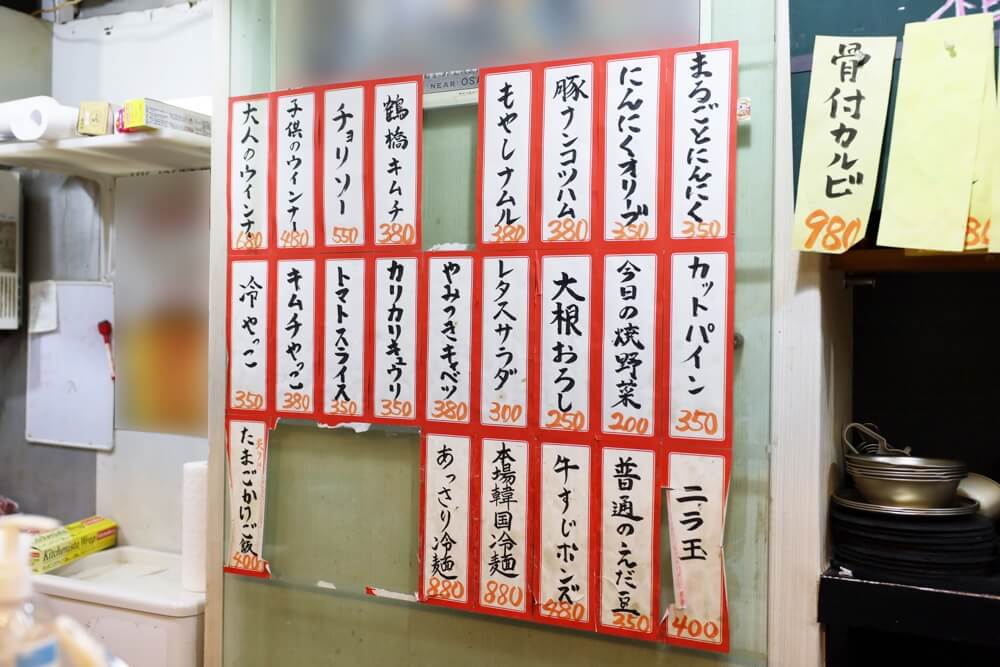 まるごとにんにく
350
にんにくオリーブ
350
豚ナンコツハム
380
もやしナムル
380
鶴橋キムチ
380
チョリソー
550
子供のウインナー
480
大人のウインナー
680
カットパイン
350
今日の焼野菜
200
大根おろし
250
レタスサラダ
300
やみつきキャベツ
380
カリカリキュウリ
350
トマトスライス
350
キムチやっこ
380
冷やっこ
350
ニラ玉
400
普通のえだ豆
350
牛すじポンズ
480
本場韓国冷麺
880
あっさり冷麺
880
たまごかけご飯
400
骨付カルビ
980
NEAR OSA
Kitchenista Wrap